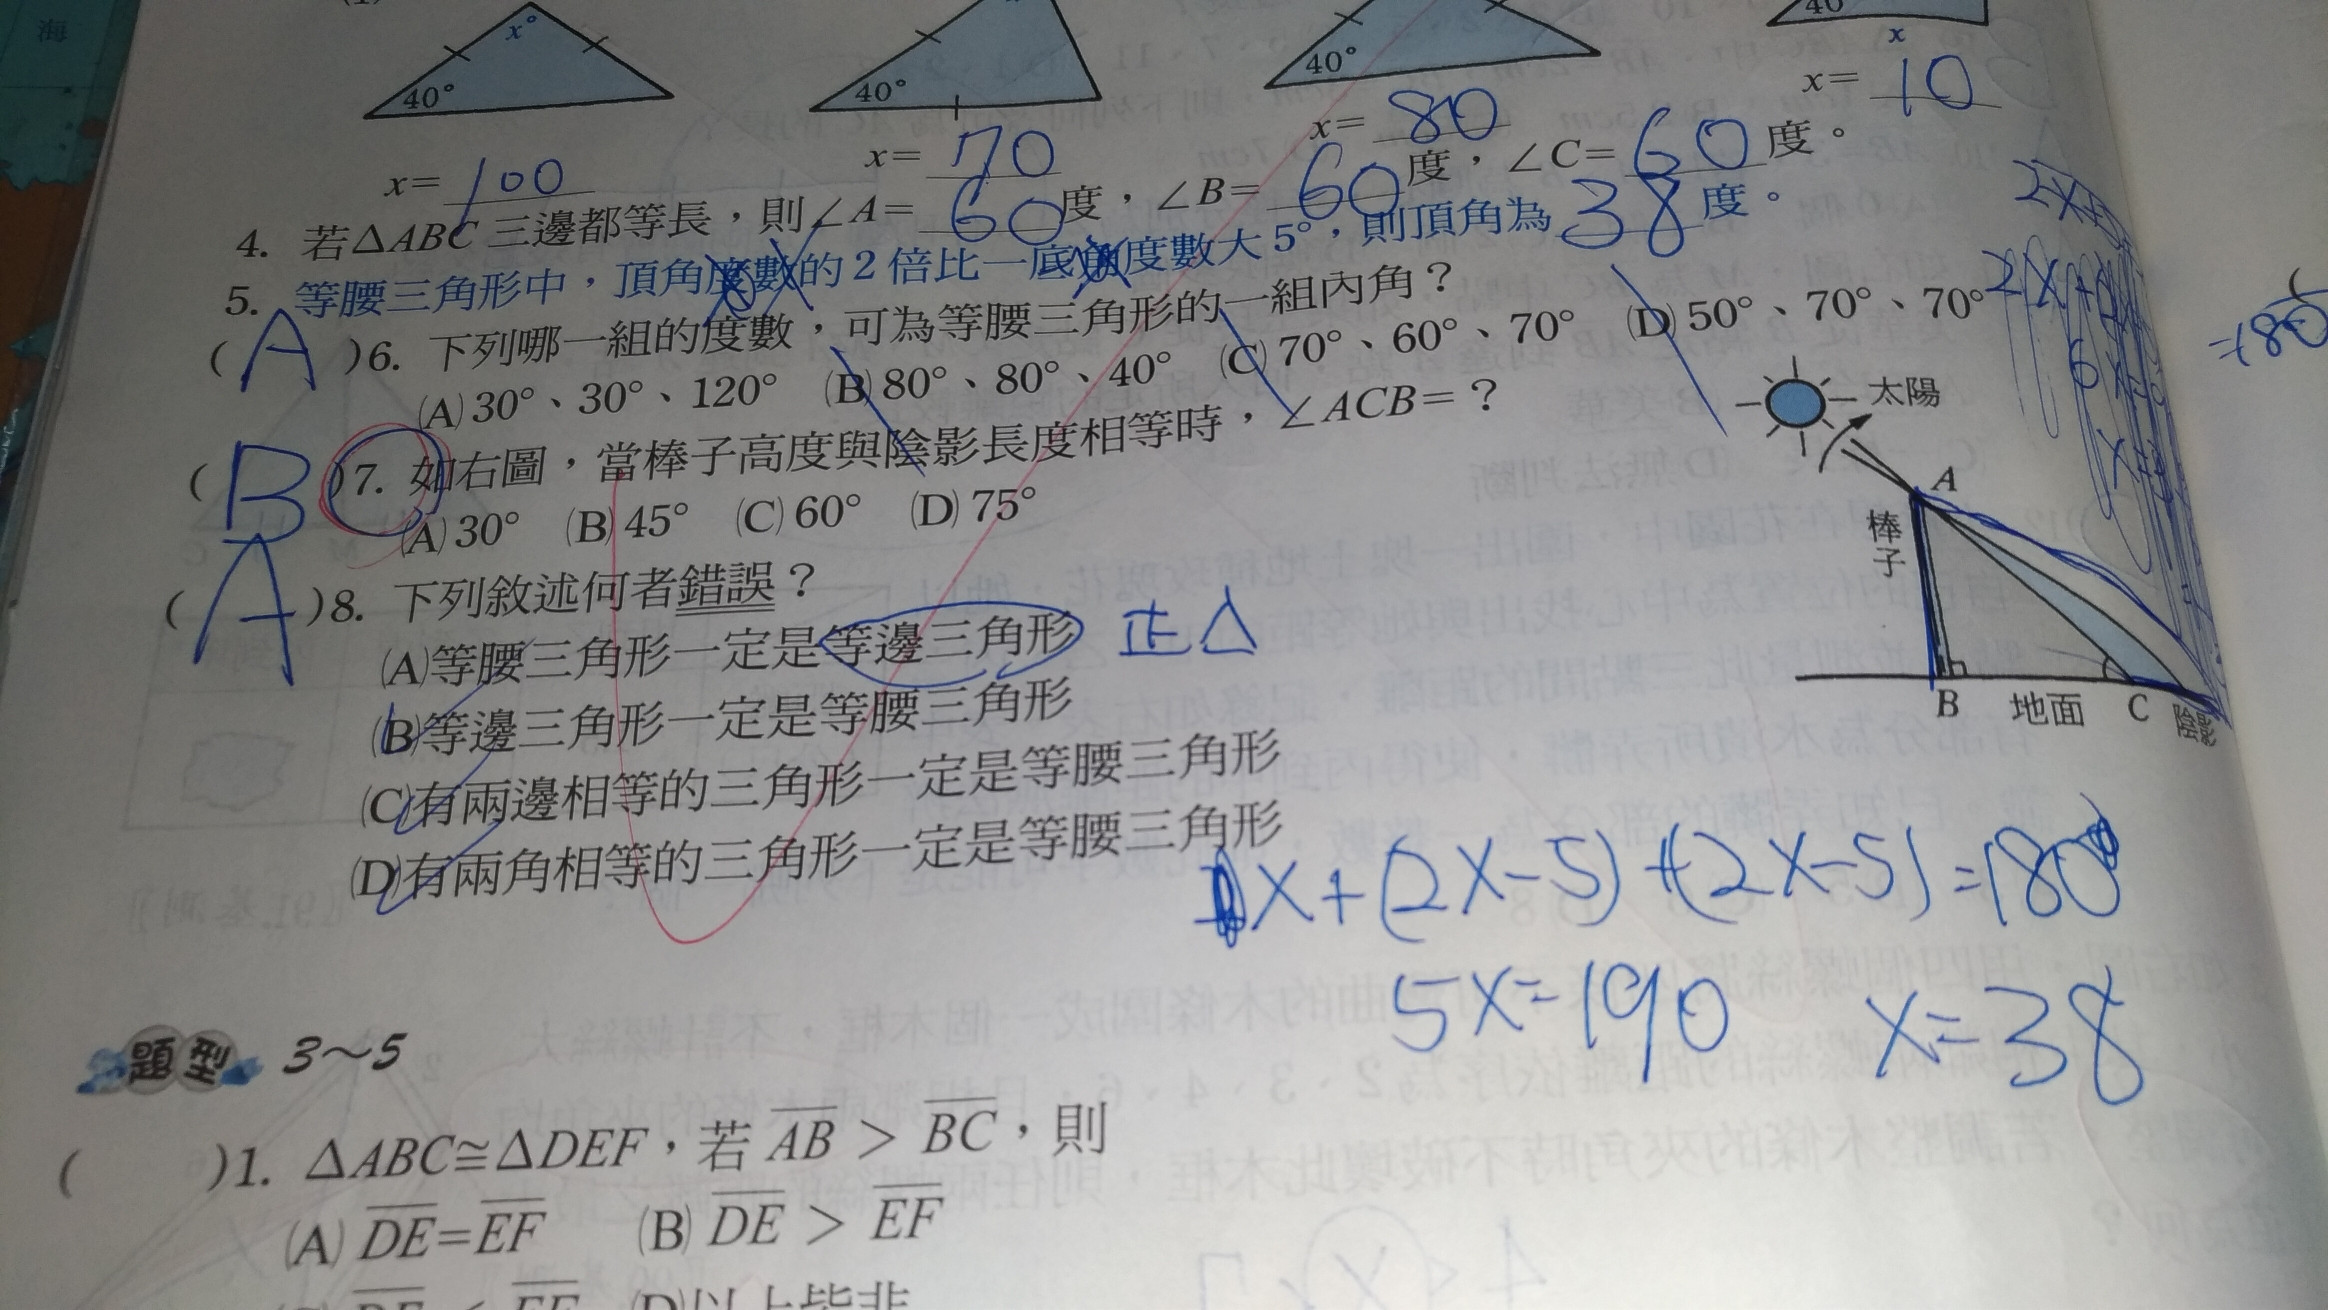 海
x°
40°
40°
40°
40
x
x= 100
x= 70
x= 80
x= 10
4. 若△ABC 三邊都等長，則∠A= 60 度，∠B= 60 度，∠C= 60 度。
5. 等腰三角形中，頂角度數的2倍比一底角度數大5°，則頂角為 38 度。
( A )6. 下列哪一組的度數，可為等腰三角形的一組內角？
(A) 30°、30°、120° (B) 80°、80°、40° (C) 70°、60°、70° (D) 50°、70°、70°
=180
( B )7. 如右圖，當棒子高度與陰影長度相等時，∠ACB=？
(A) 30° (B) 45° (C) 60° (D) 75°
太陽
A
棒子
B 地面 C 陰影
( A )8. 下列敘述何者錯誤？
(A)等腰三角形一定是等邊三角形 正△
(B)等邊三角形一定是等腰三角形
(C)有兩邊相等的三角形一定是等腰三角形
(D)有兩角相等的三角形一定是等腰三角形
x+(2x-5)+(2x-5)=180°
5x=190 x=38
題型 3～5
( )1. △ABC≅△DEF，若 AB > BC，則
(A) DE=EF (B) DE > EF
(D)以上皆非